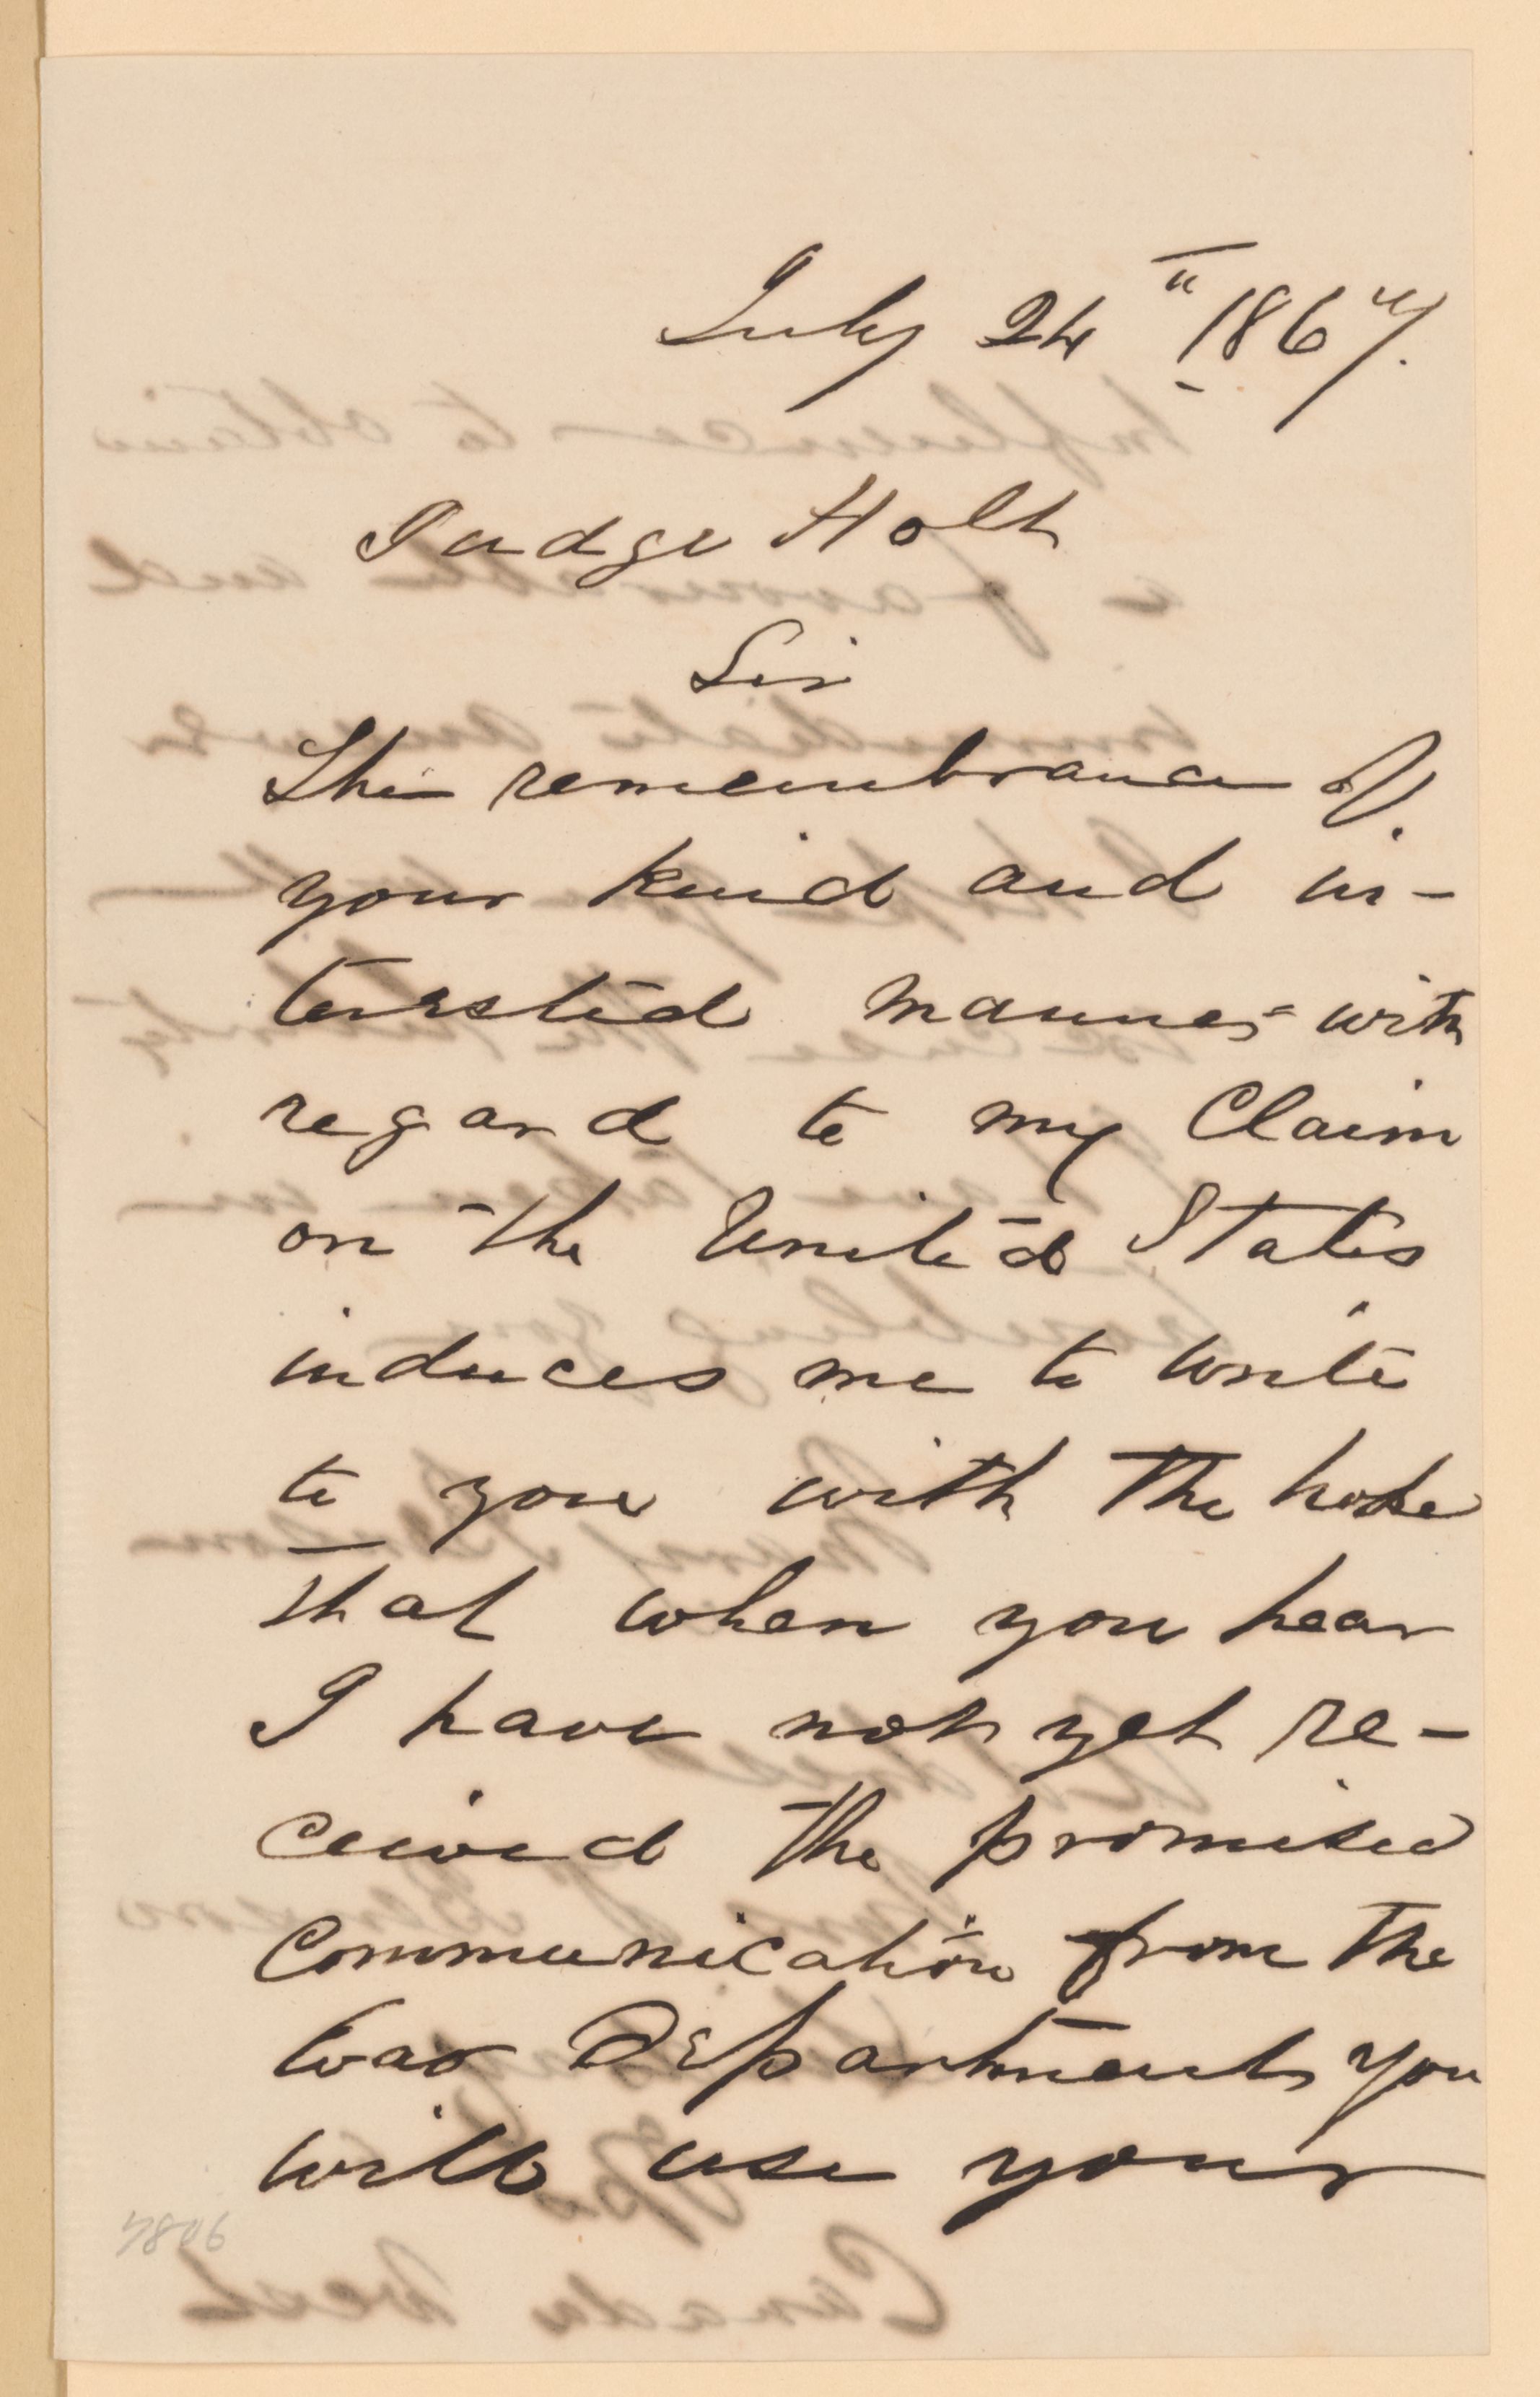 July 24th 1867.
Judge Holt
Sir
The remembrance of
your kind and in-
terested manner with
regard to my Claim
on the United States
induces me to write
to you with the hope
that when you hear
I have not yet re-
ceived the promised
Communication from the
War Department you
will use your
7806